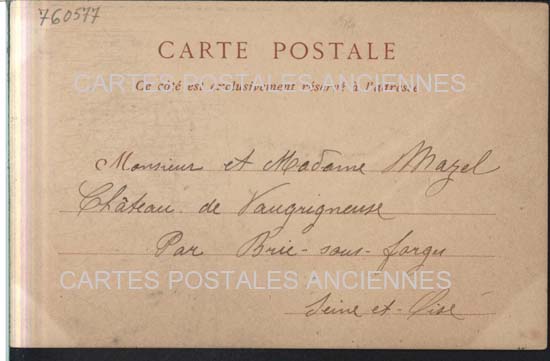 760577
CARTE POSTALE
CARTES POSTALES ANCIENNES
Ce côté est exclusivement réservé à l'adresse
Monsieur et Madame Mazel
Château de Vaugrigneuse
Par Brie-sous-forges
CARTES POSTALES ANCIENNES
Seine-et-Oise